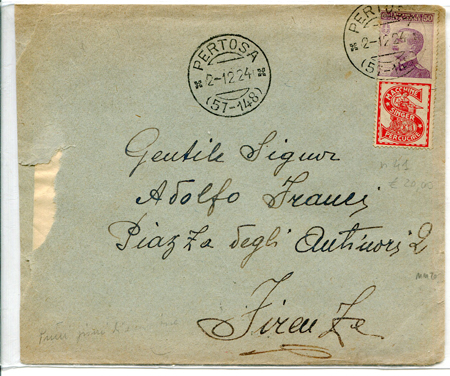 PERTOSA
2-12.24
(57-148)
PERTOSA
2-12.24
50
MACCHINE
SINGER
PER CUCIRE
Gentile Signor
Adolfo Franci
Piazza degli Antinori 2
Firenze
n 41
€ 20,00